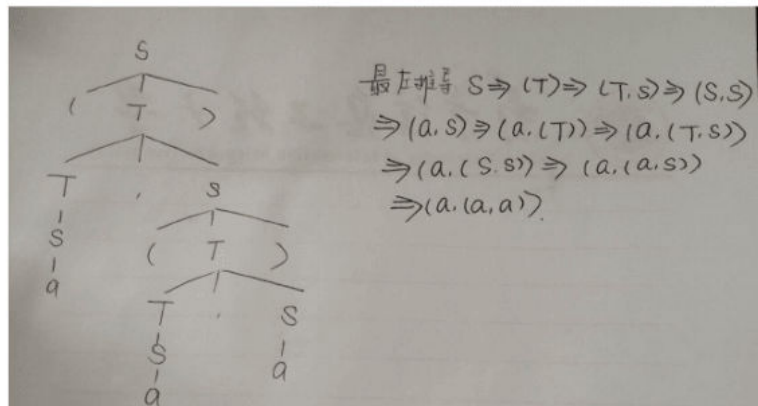 S
( T )
T , S
S ( T )
a T , S
S a
a
最左推导 S⇒(T)⇒(T,S)⇒(S,S)
⇒(a,S)⇒(a,(T))⇒(a,(T,S))
⇒(a,(S,S))⇒(a,(a,S))
⇒(a,(a,a))